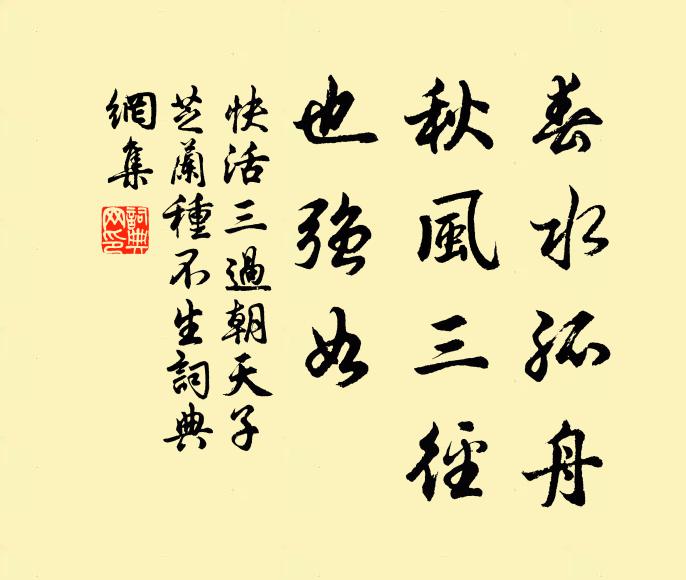 春水孤舟
秋風三徑
也強如
快活三過朝天子
芝蘭種不生詞典
網集
詞典
网印